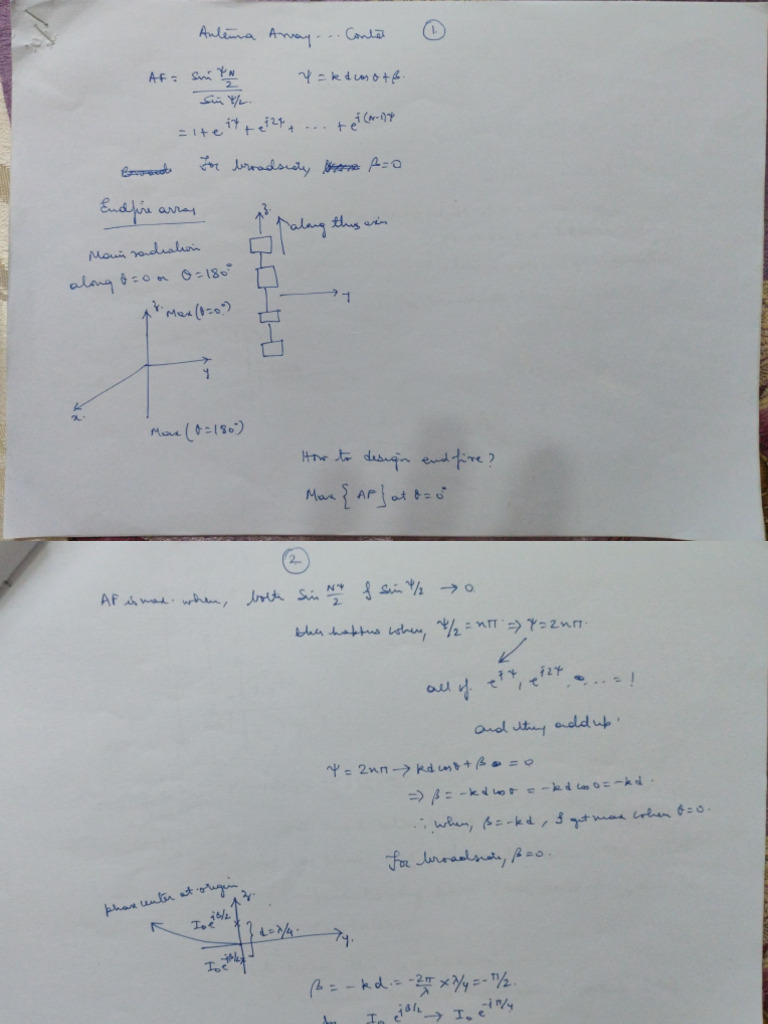 Antenna Array ... Contd ①
AF = sin ψN/2 / sin ψ/2 ψ = kd cos θ + β.
= 1 + e^jψ + e^j2ψ + ... + e^j(N-1)ψ
For broadside, β = 0
Endfire array
Main radiation
along θ = 0 or θ = 180°
z along this axis
y
z Max (θ = 0°)
y
x
Max (θ = 180°)
How to design endfire?
Max {AF} at θ = 0°
②
AF is max. when, both sin Nψ/2 & sin ψ/2 → 0
this happens when, ψ/2 = nπ ⇒ ψ = 2nπ.
all of e^jψ, e^j2ψ, ... = 1
and they add up.
ψ = 2nπ → kd cos θ + β = 0
⇒ β = -kd cos θ = -kd cos 0 = -kd.
∴ when, β = -kd, I get max when θ = 0.
For broadside, β = 0.
phase center at origin
z
I₀e^jβ/2 d = λ/4 y.
I₀e^-jβ/2
β = -kd = -2π/λ × λ/4 = -π/2.
I₀ e^jβ/2 → I₀ e^-jπ/4